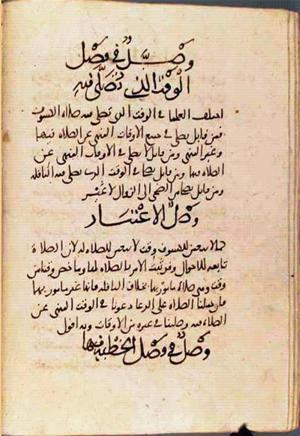 وصل في فصل
الوقت الذي تصلى فيه
اختلف العلما في الوقت الذي تصلى فيه صلاة الكسوف
فمن قايل يصلى في جميع الاوقات المنهى عن الصلاة فيها
وغير المنهى ومن قايل لا يصلى في الاوقات المنهى عن
الصلاة فيها ومن قايل يصلى في الوقت الذي يصلى فيه النافلة
ومن قايل يصلى من الضحى الى الزوال لا غير
وصل الاعتبار
لما لا يتعين للكسوف وقت لا يتعين للصلاة له لان الصلاة
تابعة للاحوال وقد ثبت الامر بالصلاة لها وما خص وقتا من
وقت وهي صلاة مامور بها بخلاف النافلة فانها غير مامور بها
فان حملنا الصلاة على الدعا دعونا في الوقت المنهى عن
الصلاة فيه وصلينا في غيره من الاوقات وبه اقول
وصل في فصل الخطبة فيها